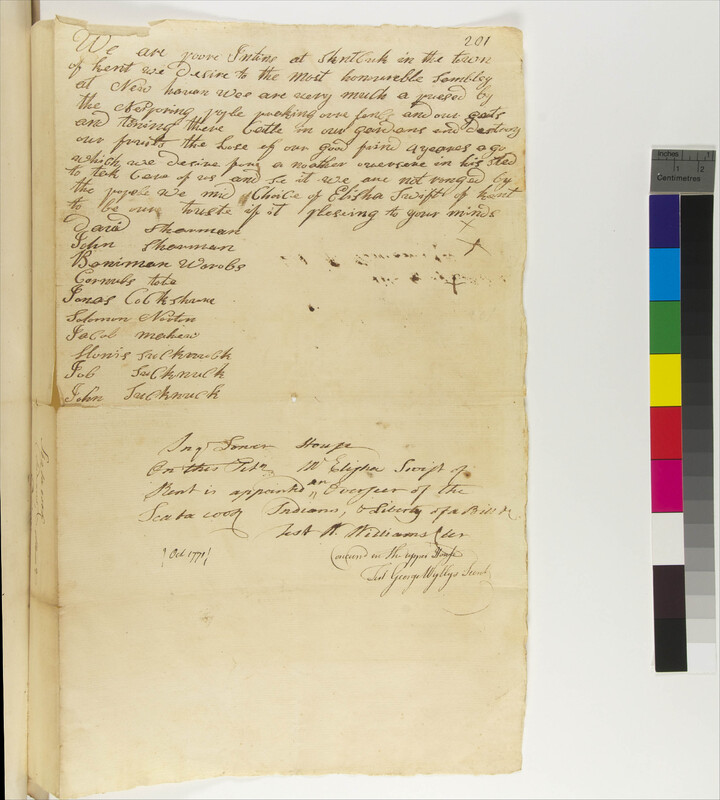 201
We are poore Intins at Skntbuk in the town
of kent we Desire to the most honourable sembley
at New haven wee are very much a puesed by
the Neboring pople peaking oure fence and our gats
and torning there Catle in our gardans and destroy
our fruits the Lose of our good frind 4 yeares a go
which we desire for a noather oversere in his sted
to tak Care of us and se it we are not ronged by
the popele we mad Choice of Elisha Swift of kent
to be our touste if it plesing to your minds
David Sherman
John Sherman
Beniman Worobs
Cornubs tota
Jonas Cockshure
Solomon Norton
Jacob mahew
Job Suck nuck
John Suck nuck
In ye Lower House
On this Petn Mr Elisha Swift of
Kent is appointed an Overseer of the
Scatacook Indians, & Liberty of a Bill &c
Test W. Williams Cler
(Oct. 1771)
Concurrd in the upper House
Test George Wyllys Secret
inches
1
2
Centimetres